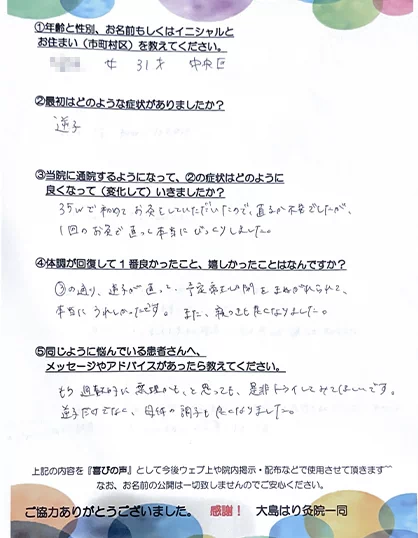 ①年齢と性別、お名前もしくはイニシャルと
お住まい（市町村区）を教えてください。
女 31才 中央区
②最初はどのような症状がありましたか？
逆子
③当院に通院するようになって、②の症状はどのように
良くなって（変化して）いきましたか？
35wで初めてお灸をしていただいたので、直るか不安でしたが、
1回のお灸で直って本当にびっくりしました。
④体調が回復して１番良かったこと、嬉しかったことはなんですか？
③の通り、逆子が直って、予定帝王切開をまぬがれられて、
本当にうれしかったです。また、も良くなりました。
⑤同じように悩んでいる患者さんへ、
メッセージやアドバイスがあったら教えてください。
もう週数的に無理かも、と思っても、是非トライしてみてほしいです。
逆子だけでなく、母体の調子も良くなりました。
上記の内容を『喜びの声』として今後ウェブ上や院内掲示・配布などで使用させて頂きます^^
なお、お名前の公開は一切致しませんのでご安心ください。
ご協力ありがとうございました。 感謝！ 大島はり灸院一同